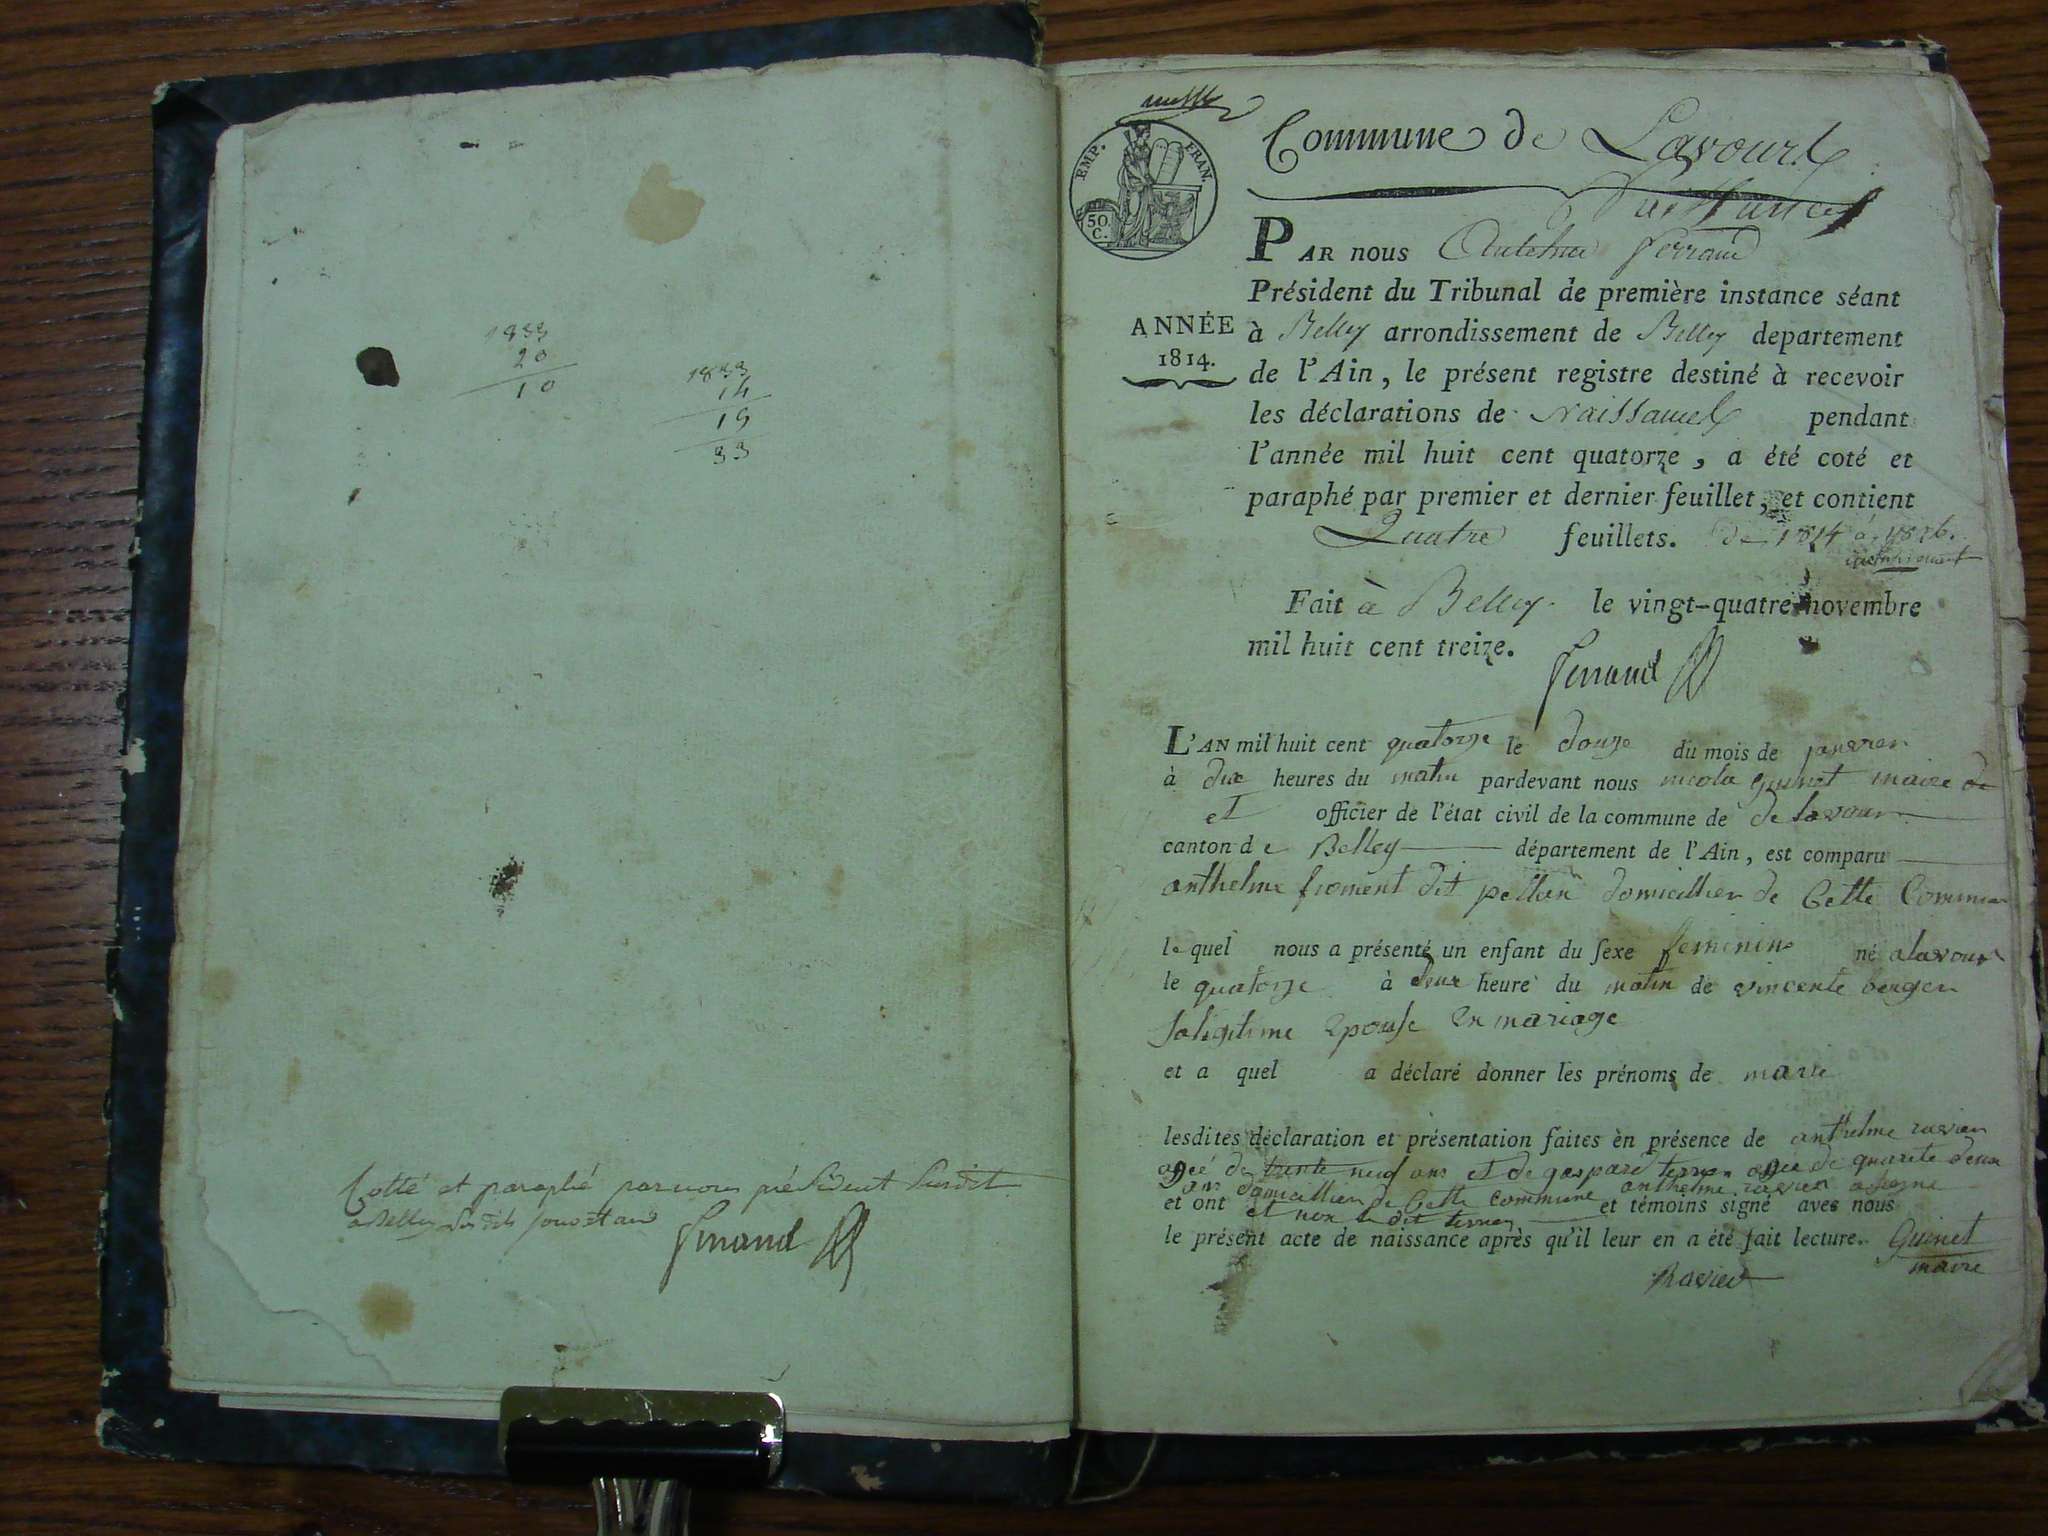 1833
20
10
1833
14
19
33
Cotté et paraphé par nous président susdit
a Belley les dits jour et an
Ferrand
EMP. FRAN.
50
C.
Commune de Lavours
Naissances
ANNÉE
1814.
PAR nous Anthelme Ferrand
Président du Tribunal de première instance séant
à Belley arrondissement de Belley departement
de l'Ain, le présent registre destiné à recevoir
les déclarations de Naissances pendant
l'année mil huit cent quatorze, a été coté et
paraphé par premier et dernier feuillet, et contient
Quatre feuillets. De 1814 à 1826.
Fait à Belley le vingt-quatre novembre
mil huit cent treize.
Ferrand
L'AN mil huit cent quatorze le douze du mois de janvier
à dix heures du matin pardevant nous nicola guinet maire de
et officier de l'état civil de la commune de de lavour
canton de Belley département de l'Ain, est comparu
anthelme froment dit pellan domicillier de Cette Commune
le quel nous a présenté un enfant du sexe feminine né a lavour
le quatorze à deux heure du matin de vincente berger
saligitime epouse en mariage
et a quel a déclaré donner les prénoms de marie
lesdites déclaration et présentation faites en présence de anthelme ravier
ageé de trente neuf ans et de gaspard terrier ageé de quarete deux
ans domicillier de Cette Commune anthelme ravier a signe
et ont et non le dit terrier et témoins signé aves nous
le présent acte de naissance après qu'il leur en a été fait lecture. Guinet
maire
Ravier